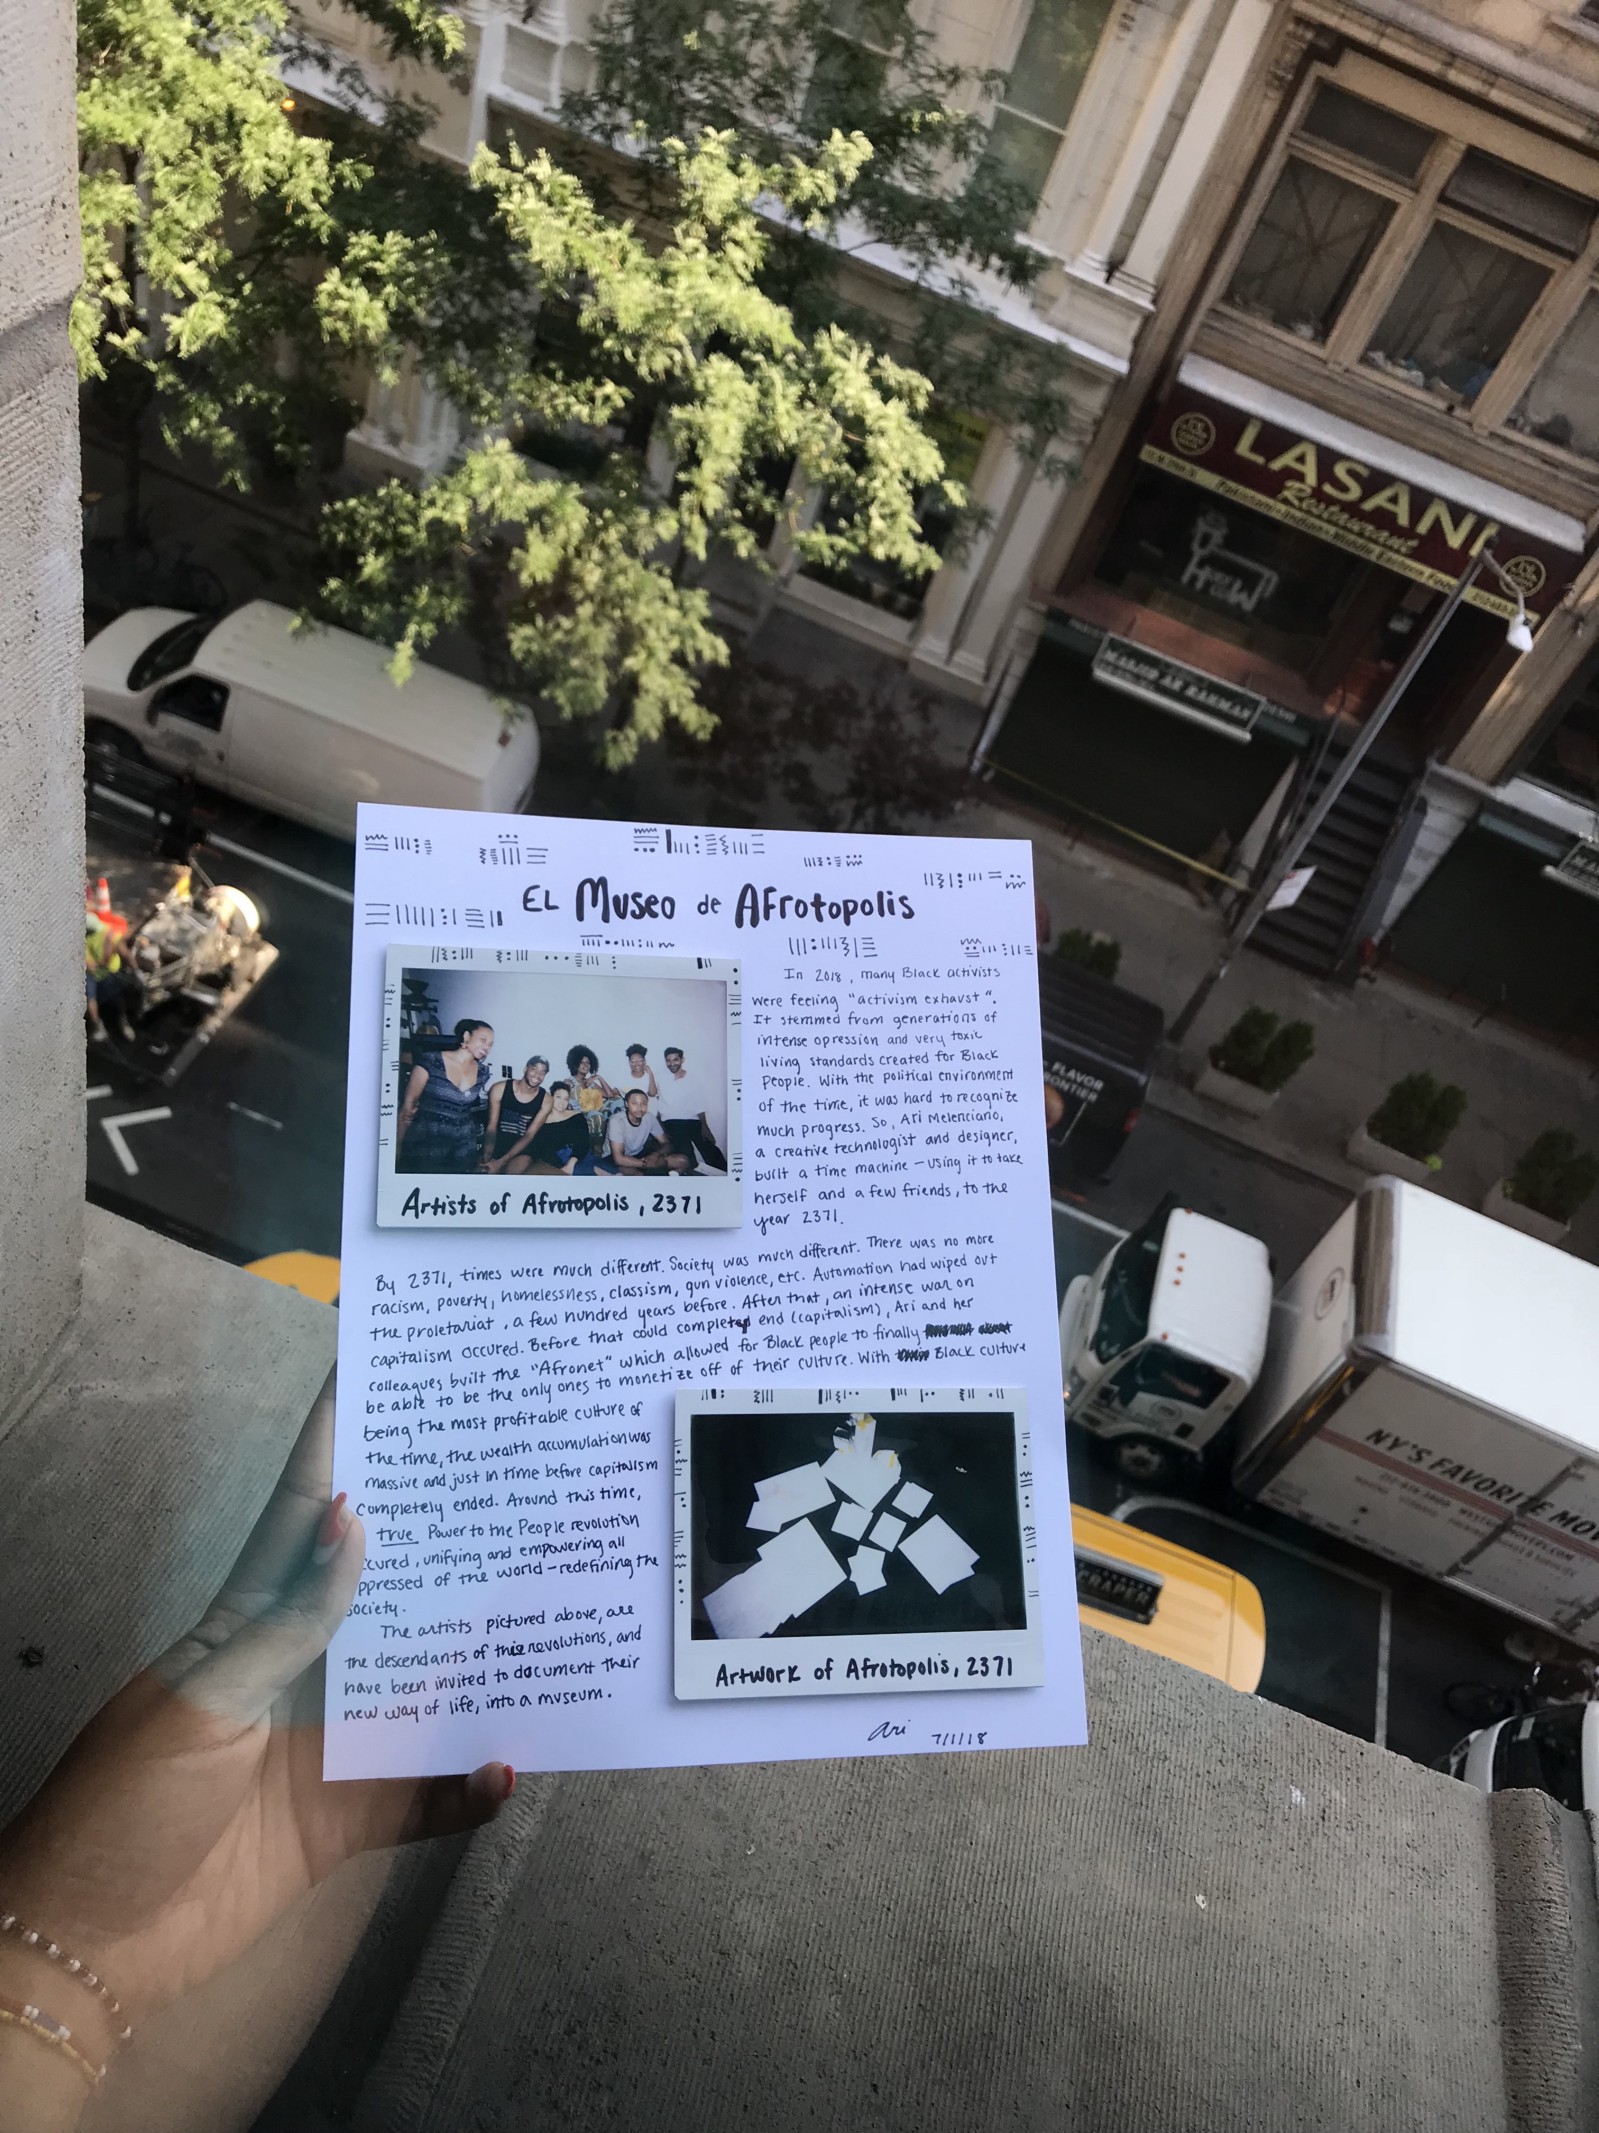 LASANI
Restaurant
Pakistani-Indian-Middle Eastern Food
HOLY COW
MASJID AR RAHMAN
FLAVOR
NY'S FAVORITE MOV
EL Museo de AFrotopolis
In 2018, many Black activists
were feeling "activism exhaust".
It stemmed from generations of
intense opression and very toxic
living standards created for Black
People. With the political environment
of the time, it was hard to recognize
much progress. So, Ari Melenciano,
a creative technologist and designer,
built a time machine - using it to take
herself and a few friends, to the
year 2371.
Artists of Afrotopolis, 2371
By 2371, times were much different. Society was much different. There was no more
racism, poverty, homelessness, classism, gun violence, etc. Automation had wiped out
the proletariat, a few hundred years before. After that, an intense war on
capitalism occured. Before that could completely end (capitalism), Ari and her
colleagues built the "Afronet" which allowed for Black people to finally
be able to be the only ones to monetize off of their culture. With Black culture
being the most profitable culture of
the time, the wealth accumulation was
massive and just in time before capitalism
completely ended. Around this time,
true Power to the People revolution
ccured, unifying and empowering all
ppressed of the world - redefining the
society.
The artists pictured above, are
the descendants of these revolutions, and
have been invited to document their
new way of life, into a museum.
Artwork of Afrotopolis, 2371
ari 7/1/18